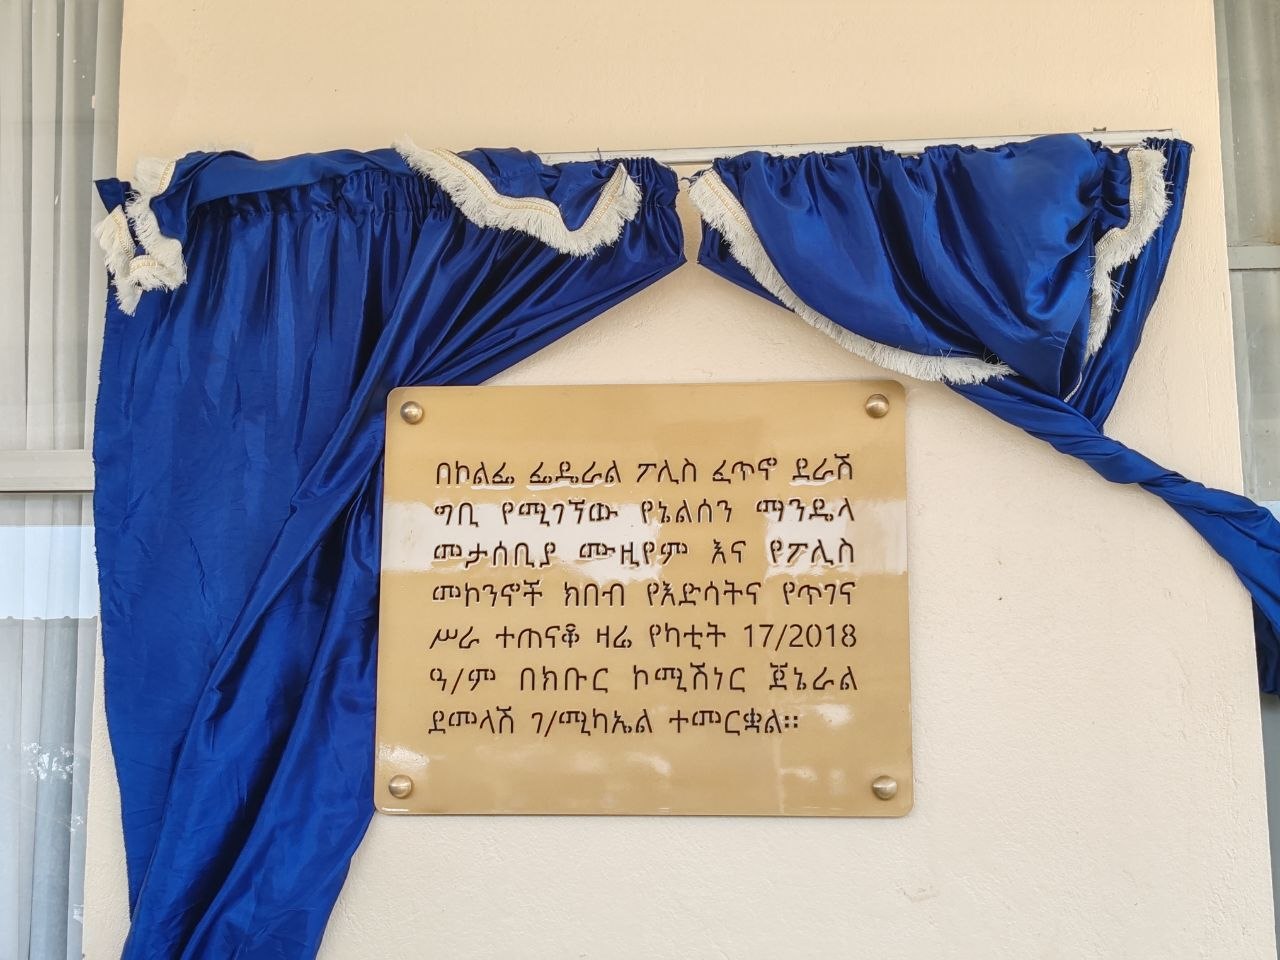 በኮልፌ ፌዴራል ፖሊስ ፈጥኖ ደራሽ
ግቢ የሚገኘው የኔልሰን ማንዴላ
መታሰቢያ ሙዚየም እና የፖሊስ
መኮንኖች ክበብ የእድሳትና የጥገና
ሥራ ተጠናቆ ዛሬ የካቲት 17/2018
ዓ/ም በክቡር ኮሚሽነር ጀኔራል
ደመላሽ ገ/ሚካኤል ተመርቋል።